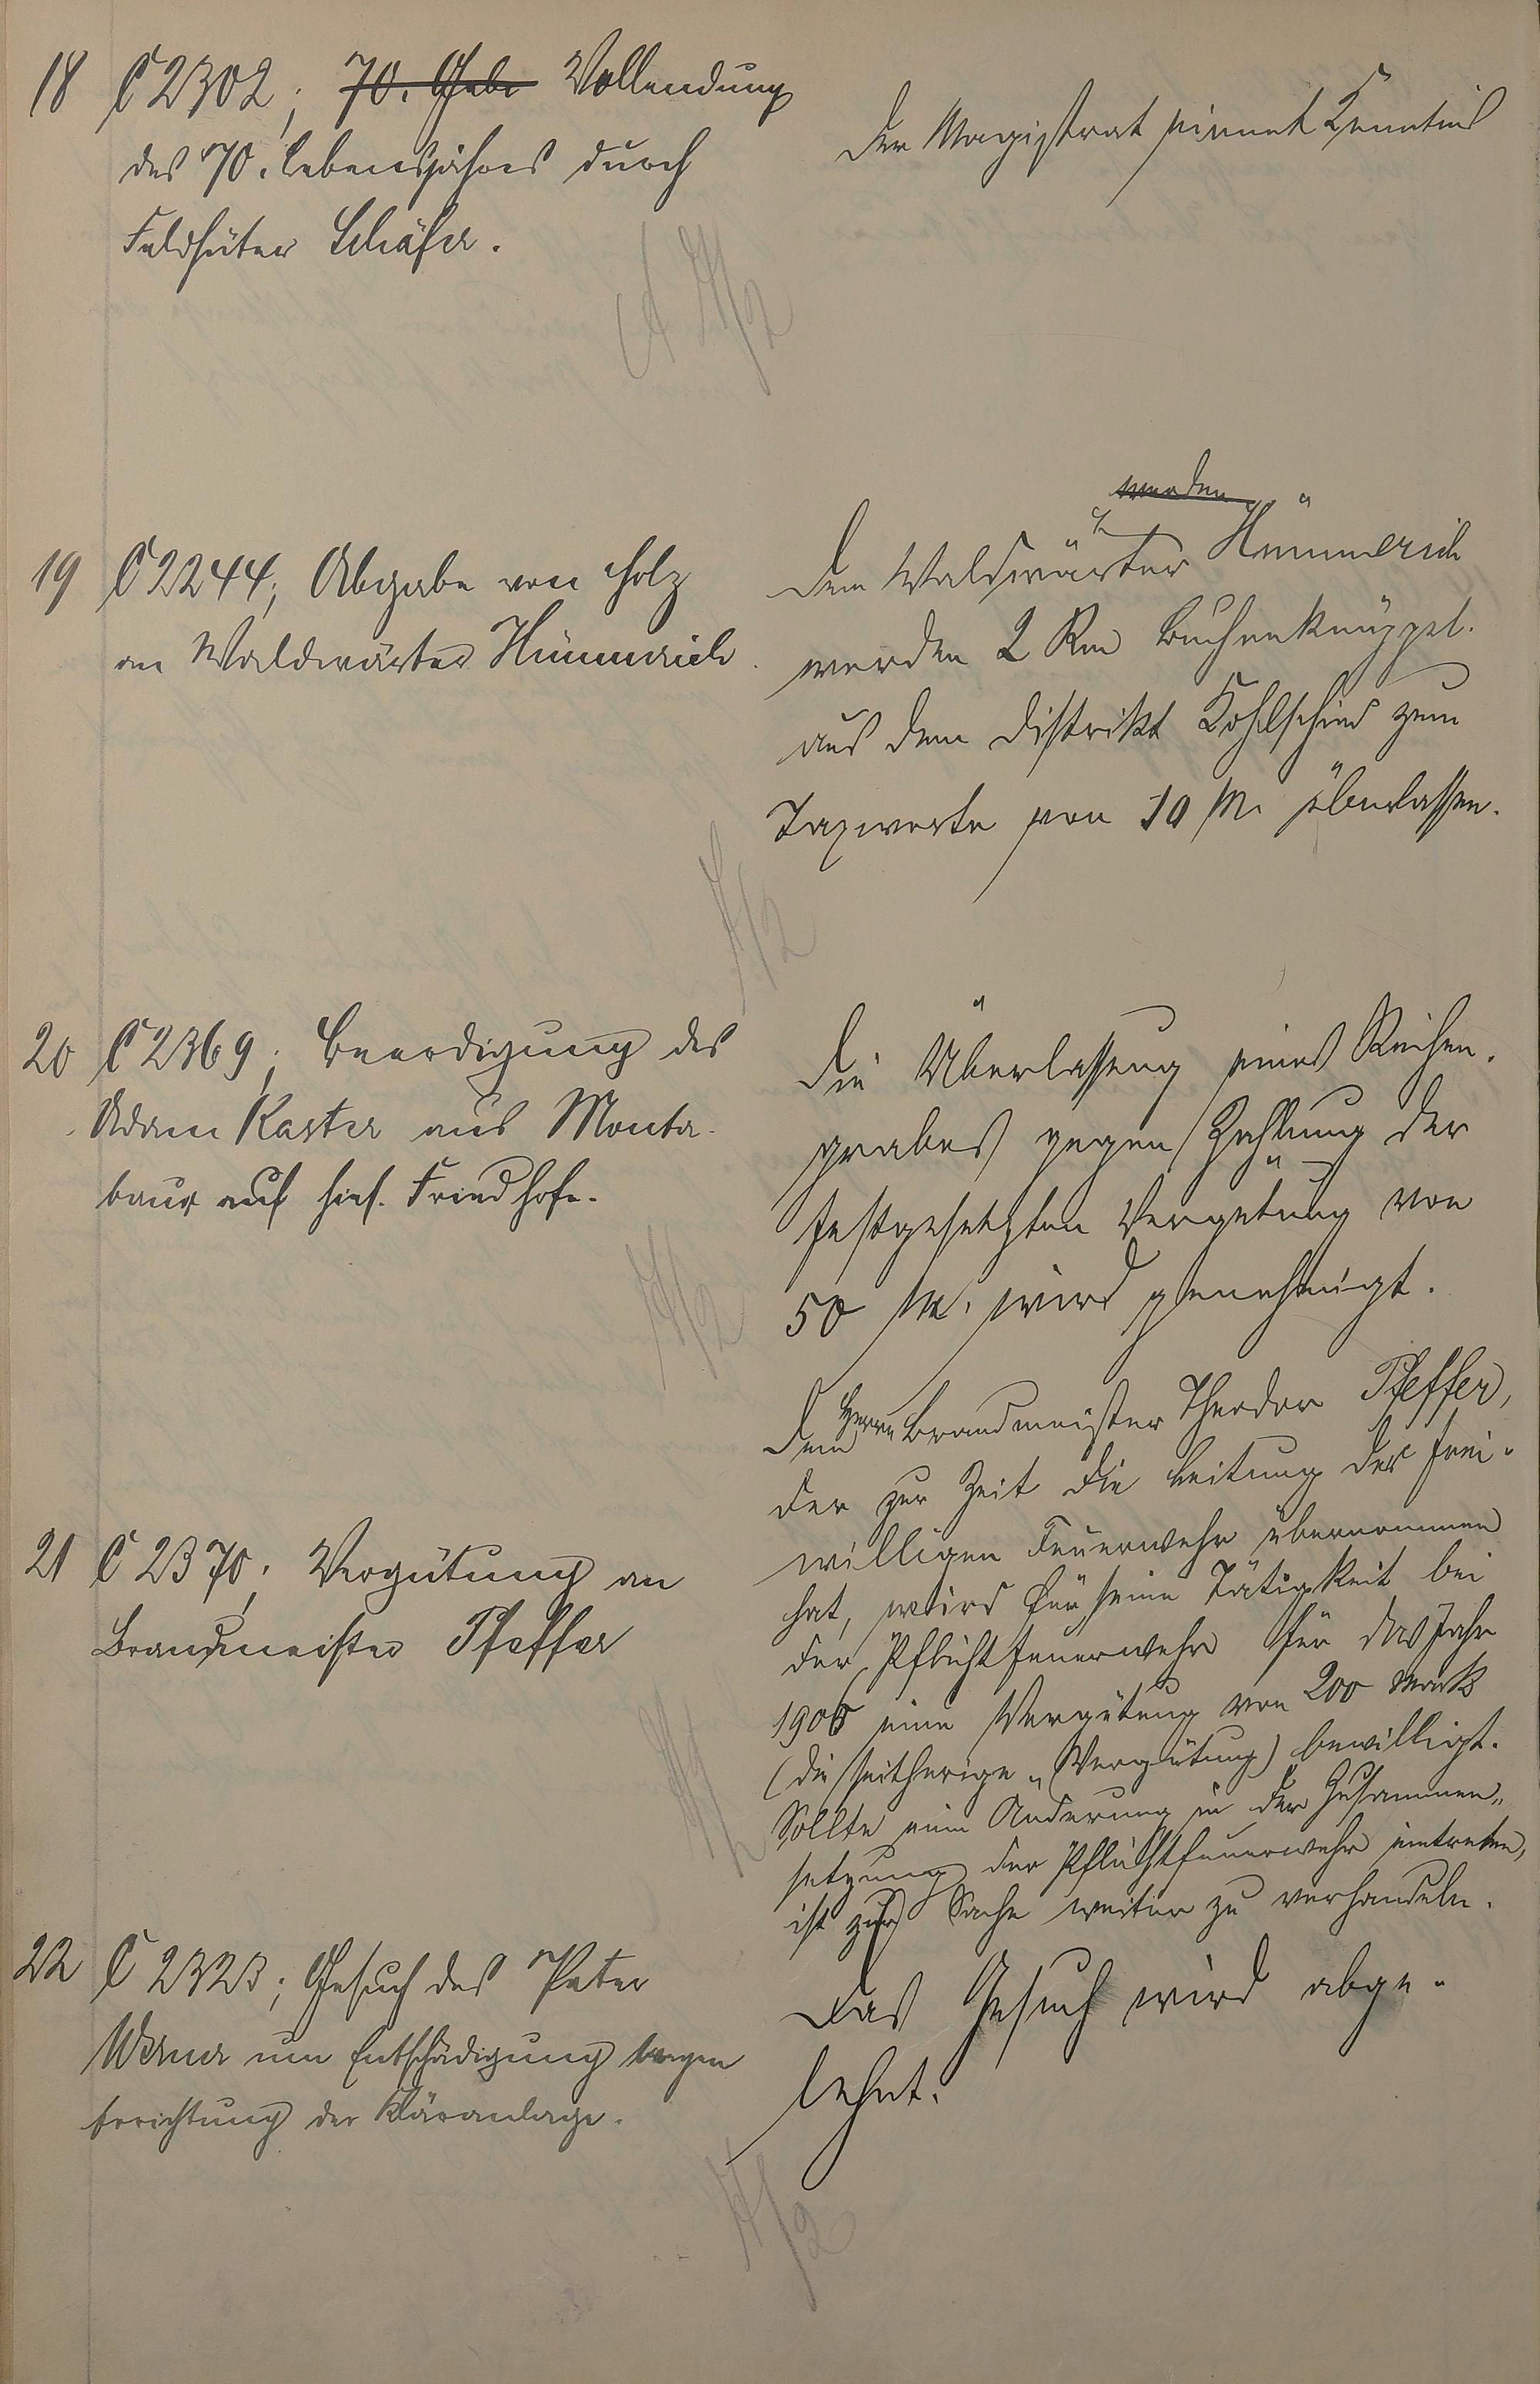 18 C 2302; 70. Gebr Vollendung
des 70. Lebensjahres durch
Feldhüter Schäfer.
Der Magistrat nimmt Kenntnis
19 C 2244; Abgabe von Holz
an Waldwärter Hümmerich.
werden
Dem Waldwärter Hümmerich
werden 2 Rm Buchenknüppel
aus dem Distrikt Kohlschied zum
Taxwerte von 10 M. überlassen.
20 C 2369; Beerdigung des
Adam Kaster aus Monta-
baur auf hies. Friedhofe.
Die Überlassung eines Reihen-
grabes gegen Zahlung der
festgesetzten Vergütung von
50 M. wird genehmigt.
21 C 2370; Vergütung an
Brandmeister Pfeffer
Dem Herrn Brandmeister Theodor Pfeffer,
der zur Zeit die Leitung der frei-
willigen Feuerwehr übernommen
hat, wird für seine Tätigkeit bei
der Pflichtfeuerwehr für das Jahr
1906 eine Vergütung von 200 Mark
(die seitherige Vergütung) bewilligt.
Sollte eine Änderung in der Zusammen-
setzung der Pflichtfeuerwehr eintreten,
ist zur Sache weiter zu verhandeln.
22 C 2323; Gesuch des Peter
Werner um Entschädigung wegen
Errichtung der Kläranlage.
Das Gesuch wird abge-
lehnt.